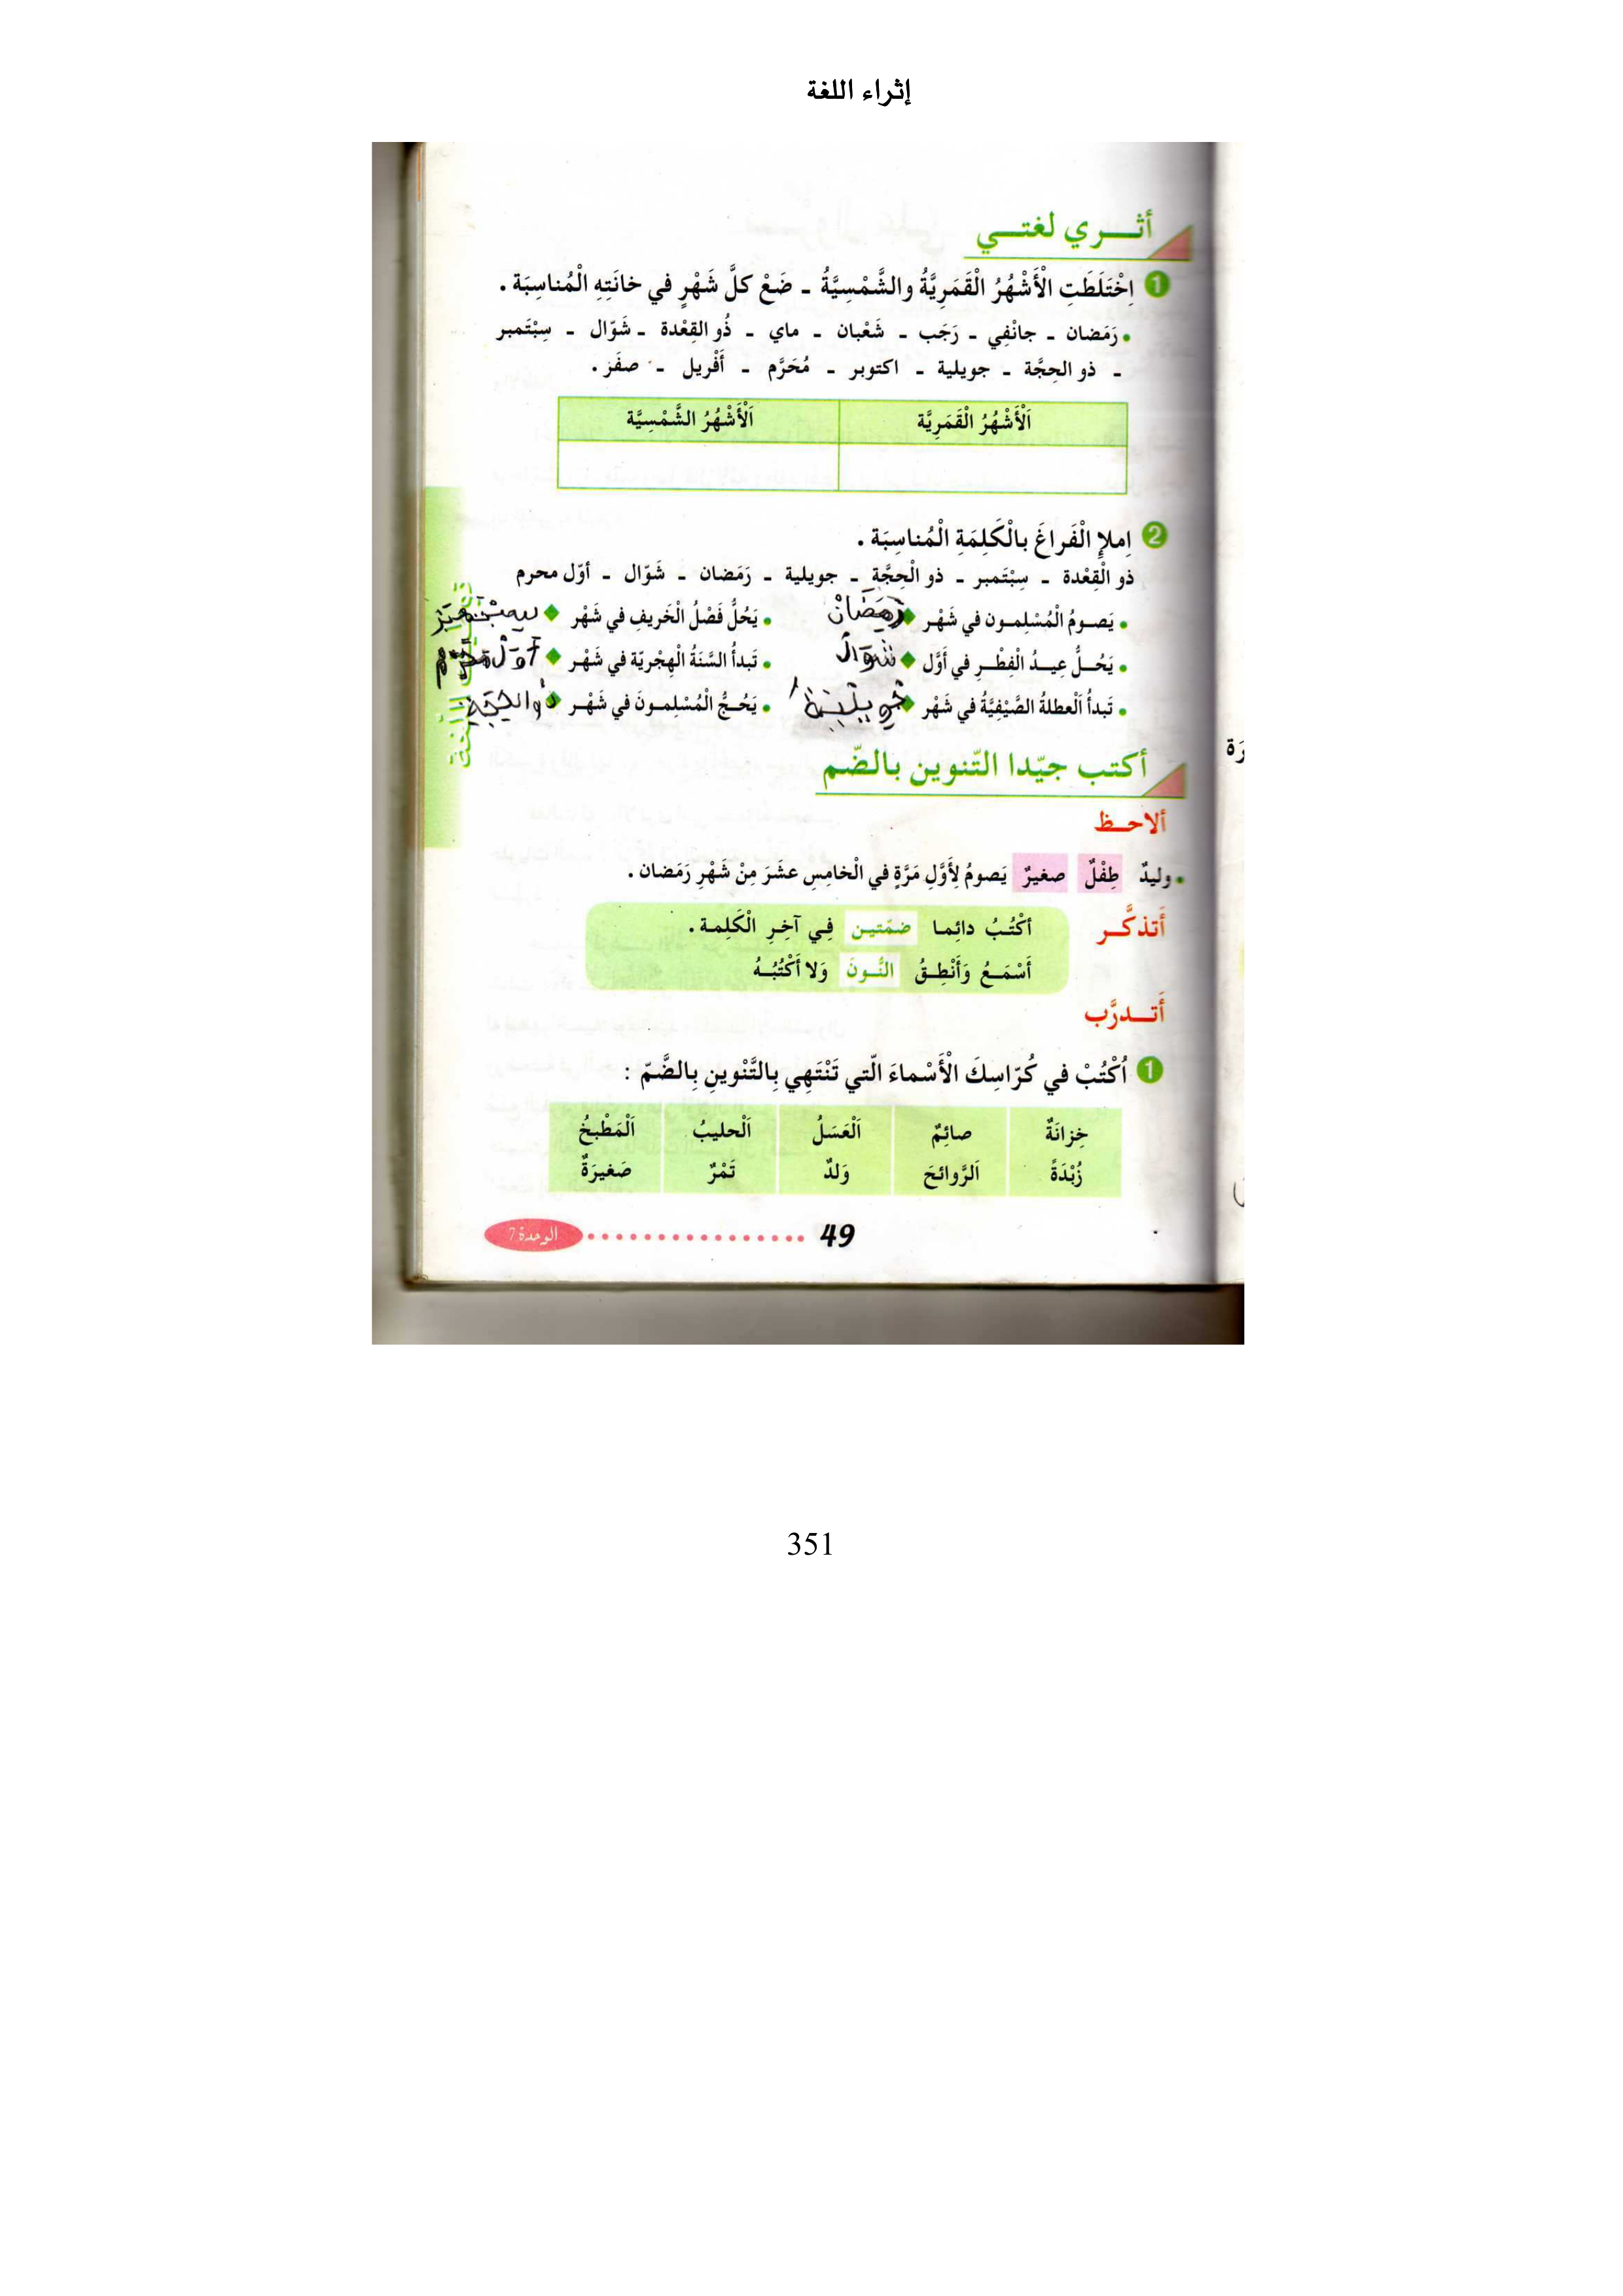 إثراء اللغة
أثـــري لغتـــي
1 اِخْتَلَطَتِ الْأَشْهُرُ الْقَمَرِيَّةُ والشَّمْسِيَّةُ ـ ضَعْ كلَّ شَهْرٍ في خانَتِهِ الْمُناسِبَة .
• رَمَضان ـ جانْفِي ـ رَجَب ـ شَعْبان ـ ماي ـ ذُو القِعْدة ـ شَوّال ـ سِبْتَمبر
ـ ذو الحِجَّة ـ جويلية ـ اكتوبر ـ مُحَرَّم ـ أَفْريل ـ صفَر .
اَلْأَشْهُرُ الْقَمَرِيَّة اَلْأَشْهُرُ الشَّمْسِيَّة
2 اِملإِ الْفَراغَ بالْكَلِمَةِ الْمُناسِبَة .
ذو الْقِعْدة ـ سِبْتَمبر ـ ذو الْحِجَّة ـ جويلية ـ رَمَضان ـ شَوّال ـ أوّل محرم
• يَصـومُ الْمُسْلِمـون في شَهْـر رَمَضَانْ • يَحُلُّ فَصْلُ الْخَريفِ في شَهْر سِبْتَمْبَرْ
• يَحُـــلُّ عِيــدُ الْفِطْــرِ في أَوَّل شوّال • تَبدأُ السَّنَةُ الْهِجْريّة في شَهْـر أوّلْ محرّم
• تَبدأُ اَلْعطلةُ الصَّيْفِيَّةُ في شَهْر جويلية • يَحُـجُّ الْمُسْلِمـونَ في شَهْـر ذُو الحِجّة
أكتب جيّدا التّنوين بالضّم
ألاحــظ
• وليدٌ طِفْلٌ صغيرٌ يَصومُ لِأَوَّلِ مَرَّةٍ في الْخامِسِ عشَرَ مِنْ شَهْرِ رَمَضان .
أَتذكَّــر
أكْتُبُ دائِما ضمّتين فِي آخِرِ الْكَلِمة .
أَسْمَـعُ وَأَنْطِـقُ النُّـونَ وَلا أَكْتُبُـهُ
أَتــدرَّب
1 اُكْتُبْ في كُرّاسِكَ الْأَسْماءَ الّتي تَنْتَهِي بِالتَّنْوينِ بِالضَّمّ :
خِزانَةٌ صائِمٌ اَلْعَسَلُ اَلْحليبُ اَلْمَطْبخُ
زُبْدَةً اَلرَّوائحَ وَلدٌ تَمْرٌ صَغيرَةٌ
49 الوحدة 7
351